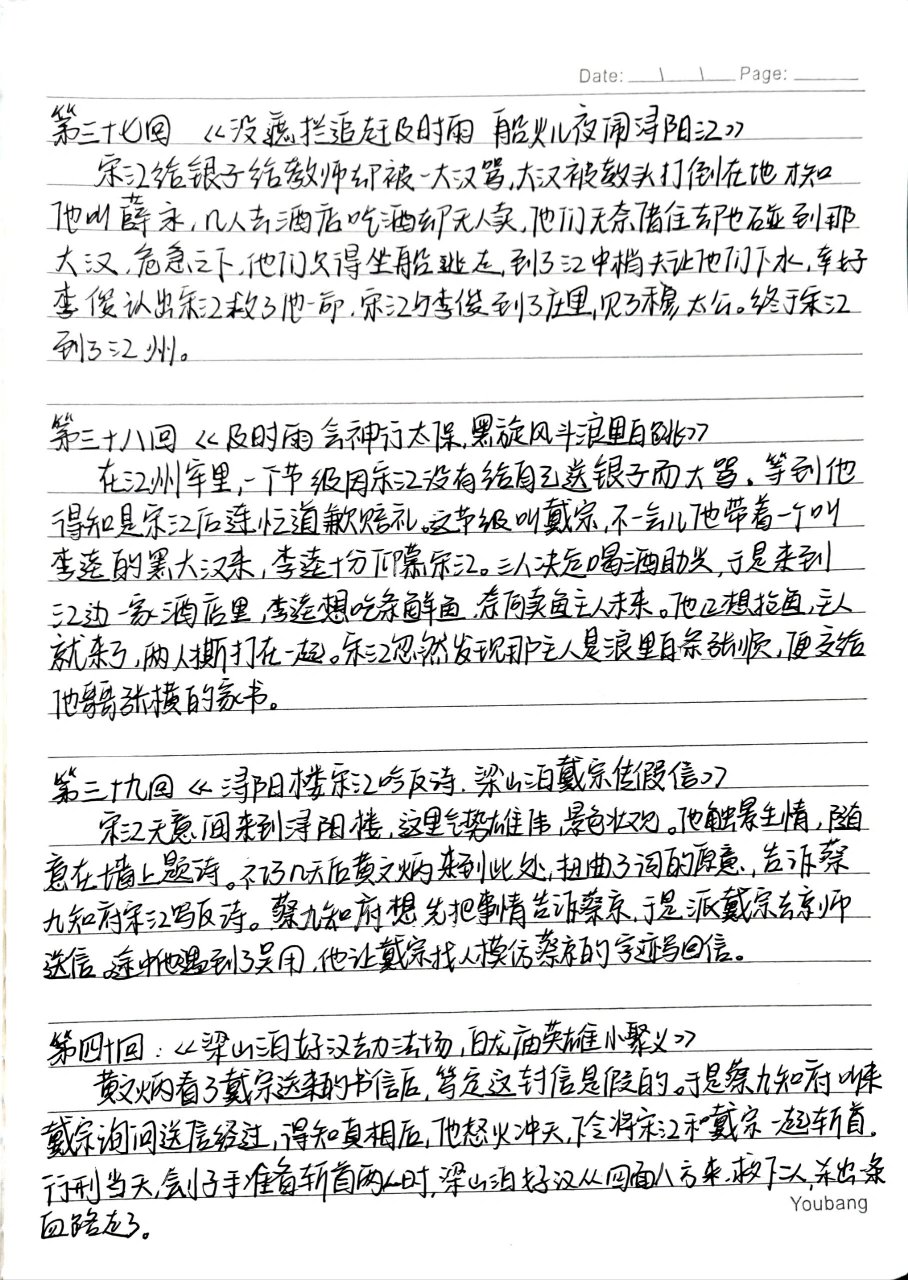 Date: \ \ Page:
第三十七回 《没遮拦追赶及时雨 船火儿夜闹浔阳江》
宋江给银子给教师却被一大汉骂,大汉被教头打倒在地才知
他叫薛永,几人去酒店吃酒却无人卖,他们无奈借住却也碰到那
大汉,危急之下,他们只得坐船逃走,到了江中梢夫让他们下水,幸好
李俊认出宋江救了他一命,宋江与李俊到了庄里,见了穆太公。终于宋江
到了江州。
第三十八回《及时雨会神行太保,黑旋风斗浪里白跳》
在江州牢里,一个节级因宋江没有给自己送银子而大骂。等到他
得知是宋江后连忙道歉赔礼。这节级叫戴宗,不一会儿他带着一个叫
李逵的黑大汉来,李逵十分仰慕宋江。三人决定喝酒助兴,于是来到
江边一家酒店里,李逵想吃条鲜鱼,奈何卖鱼主人未来。他正想抢鱼,主人
就来了,两人撕打在一起。宋江忽然发现那主人是浪里白条张顺,便交给
他张横的家书。
第三十九回《浔阳楼宋江吟反诗,梁山泊戴宗传假信》
宋江无意间来到浔阳楼,这里气势雄伟,景色壮观。他触景生情,随
意在墙上题诗。不巧几天后黄文炳来到此处,扭曲了词的原意,告诉蔡
九知府宋江写反诗。蔡九知府想先把事情告诉蔡京,于是派戴宗去京师
送信。途中他遇到了吴用,他让戴宗找人模仿蔡京的字迹写回信。
第四十回:《梁山泊好汉劫法场,白龙庙英雄小聚义》
黄文炳看了戴宗送来的书信后,笃定这封信是假的。于是蔡九知府叫来
戴宗询问送信经过,得知真相后,他怒火冲天,下令将宋江和戴宗一起斩首。
行刑当天,刽子手准备斩首两人时,梁山泊好汉从四面八方来,救下二人,杀出一条
血路走了。
Youbang